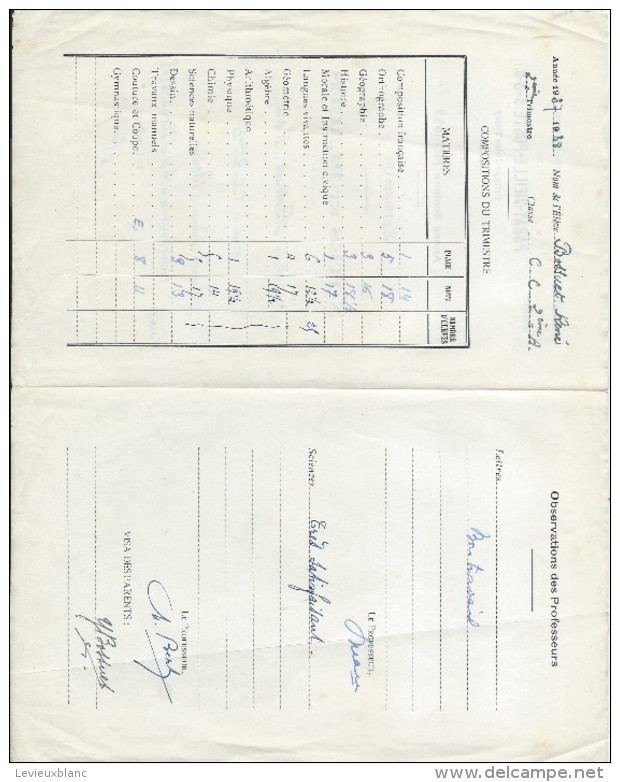 Année 1937-1938 Nom de l'Élève Bossuet René
2ème Trimestre Classe C.C. 2ème A.
COMPOSITIONS DU TRIMESTRE
MATIÈRES PLACE NOTE NOMBRE D'ÉLÈVES
Composition française 1 14
Orthographe 5 18
Géographie 3 16
Histoire 3 18½
Morale et Instruction civique 1 17
Langues vivantes 6 12½ 25
Géométrie 2 17
Algèbre 1 19½
Arithmétique
Physique 1 18½
Chimie 5 14
Sciences naturelles 5 17
Dessin 19 13
Travaux manuels
Couture et Coupe
Gymnastique E. 8 11
Observations des Professeurs
Lettres Bon travail
LE PROFESSEUR,
Sciences Très satisfaisant.
LE PROFESSEUR,
VISA DES PARENTS :
Bossuet
Levieuxblanc
delcampe.net